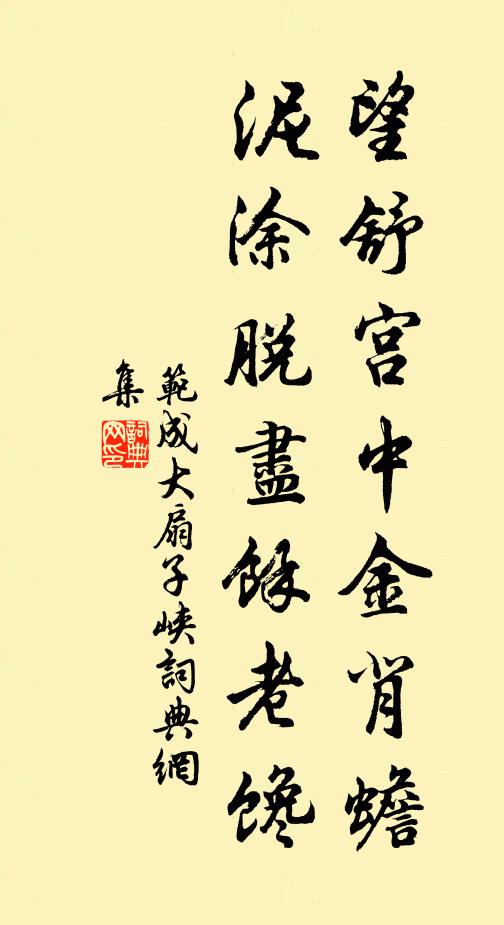 望舒宫中金背蟾
泥涂脱盡餘老馋
範成大扇子峡詞典網
集
詞典
网印